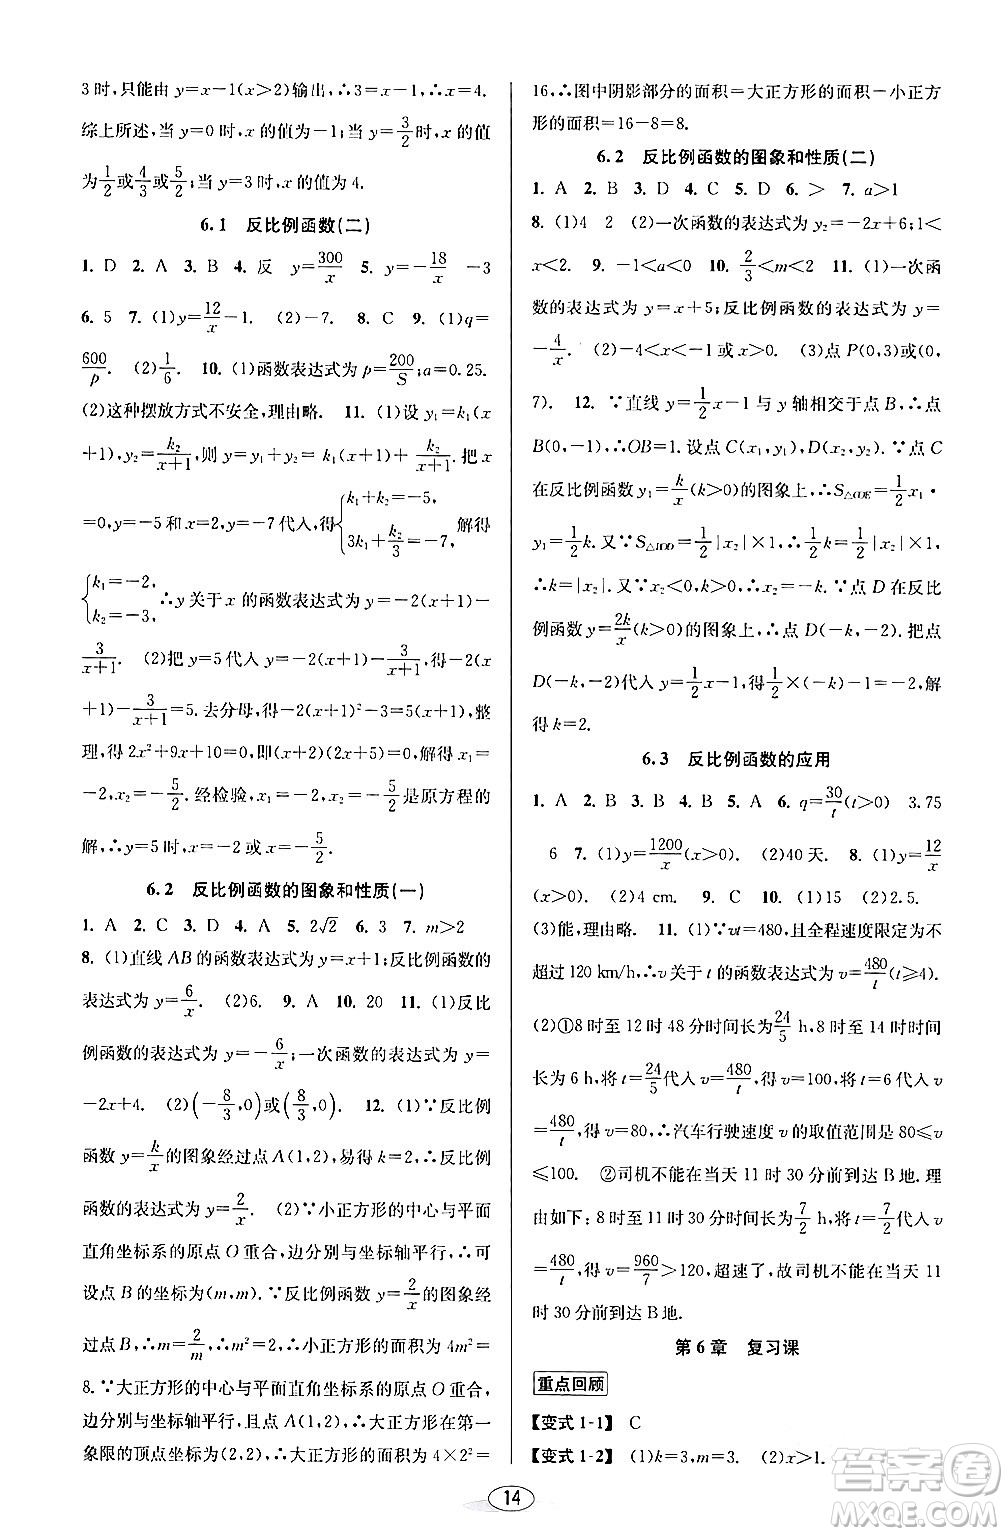 3时,只能由 y=x−1(x>2)输出,∴x−1=3,∴x=4.
综上所述,当 y=0 时,x 的值为−1;当 y=3/2时,x 的值
为1/2或3/4或5/2;当 y=3 时,x 的值为 4.
6.1 反比例函数(二)
1. D 2. A 3. B 4. 反 y=300/x 5. y=−18/x −3
6. 5 7. (1)y=12/x−1. (2)−7. 8. C 9. (1)q=
600/p. (2)1/6. 10. (1)函数表达式为 p=200/S;a=0.25.
(2)这种摆放方式不安全,理由略. 11. (1)设 y₁=k₁(x
+1),y₂=k₂/(x+1),则 y=y₁+y₂=k₁(x+1)+k₂/(x+1).把 x
=0,y=−5 和 x=2,y=−7 代入,得{k₁+k₂=−5, 3k₁+k₂/3=−7.解得
{k₁=−2, k₂=−3,∴y 关于 x 的函数表达式为 y=−2(x+1)−
3/(x+1). (2)把 y=5 代入 y=−2(x+1)−3/(x+1),得−2(x
+1)−3/(x+1)=5.去分母,得−2(x+1)²−3=5(x+1),整
理,得 2x²+9x+10=0,即(x+2)(2x+5)=0.解得 x₁=
−2,x₂=−5/2.经检验,x₁=−2,x₂=−5/2是原方程的
解,∴y=5 时,x=−2 或 x=−5/2.
6.2 反比例函数的图象和性质(一)
1. A 2. C 3. D 4. A 5. 2√2 6. 3 7. m>2
8. (1)直线 AB 的函数表达式为 y=x+1;反比例函数的
表达式为 y=6/x. (2)6. 9. A 10. 20 11. (1)反比
例函数的表达式为 y=−6/x;一次函数的表达式为 y=
−2x+4. (2)(−8/3,0)或(8/3,0). 12. (1)∵反比例
函数 y=k/x的图象过点 A(1,2),易得 k=2,∴反比例
函数的表达式为 y=2/x. (2)∵小正方形的中心与平面
直角坐标系的原点 O 重合,边分别与坐标轴平行,∴可
设点 B 的坐标为(m,m).∵反比例函数 y=2/x的图象经
过点 B,∴m=2/m,∴m²=2,∴小正方形的面积为 4m²=
8.∵大正方形的中心与平面直角坐标系的原点 O 重合,
边分别与坐标轴平行,且点 A(1,2)在大正方形在第一
象限的顶点坐标为(2,2),∴大正方形的面积为 4×2²=
16,∴图中阴影部分的面积=大正方形的面积−小正方
形的面积=16−8=8.
6.2 反比例函数的图象和性质(二)
1. A 2. B 3. D 4. C 5. D 6. > 7. a>1
8. (1)4 2 (2)一次函数的表达式为 y₂=−2x+6;1<
x<2. 9. −1<a<0 10. 2/3<m<2 11. (1)一次函
数的表达式为 y=x+5;反比例函数的表达式为 y=
−4/x. (2)−4<x<−1 或 x>0. (3)点 P(0,3)或(0,
7). 12. ∵直线 y=1/2x−1 与 y 轴相交于点 B,∴点
B(0,−1),∴OB=1.设点 C(x₁,y₁),D(x₂,y₂).∵点 C
在反比例函数 y₁=k/x(k>0)的图象上,∴S△COE=1/2x₁·
y₁=1/2k.又∵S△BOD=1/2|x₂|×1,∴1/2|x₂|×1=1/2k,
∴k=|x₂|.又∵x₂<0,∴x₂=−k.∵点 D 在反比
例函数 y=2k/x(k>0)的图象上,∴点 D(−k,−2).把点
D(−k,−2)代入 y=1/2x−1,得1/2×(−k)−1=−2,解
得 k=2.
6.3 反比例函数的应用
1. A 2. B 3. B 4. B 5. A 6. q=30/t(t>0) 3.75
6 7. (1)y=1200/x(x>0). (2)40 天. 8. (1)y=12/x
(x>0). (2)4 cm. 9. C 10. (1)15 (2)2.5.
(3)能,理由略. 11. (1)∵vt=480,且全程速度限定为不
超过 120 km/h,∴v 关于 t 的函数表达式为 v=480/t(t⩾4).
(2)①8 时至 12 时 48 分时间长为24/5 h,8 时至 14 时时间
长为 6 h,将 t=24/5代入 v=480/t,得 v=100,将 t=6 代入 v
=480/t,得 v=80,∴汽车行驶速度 v 的取值范围是 80⩽v
⩽100. ②司机不能在当天 11 时 30 分前到达 B 地.理
由如下:8 时至 11 时 30 分时间长为7/2 h,将 t=7/2代入 v
=480/t,得 v=960/7>120,超速了,故司机不能在当天 11
时 30 分前到达 B 地.
第 6 章 复习课
重点回顾
【变式 1-1】 C
【变式 1-2】 (1)k=3,m=3. (2)x>1.
14
答案圈
MXQE.COM